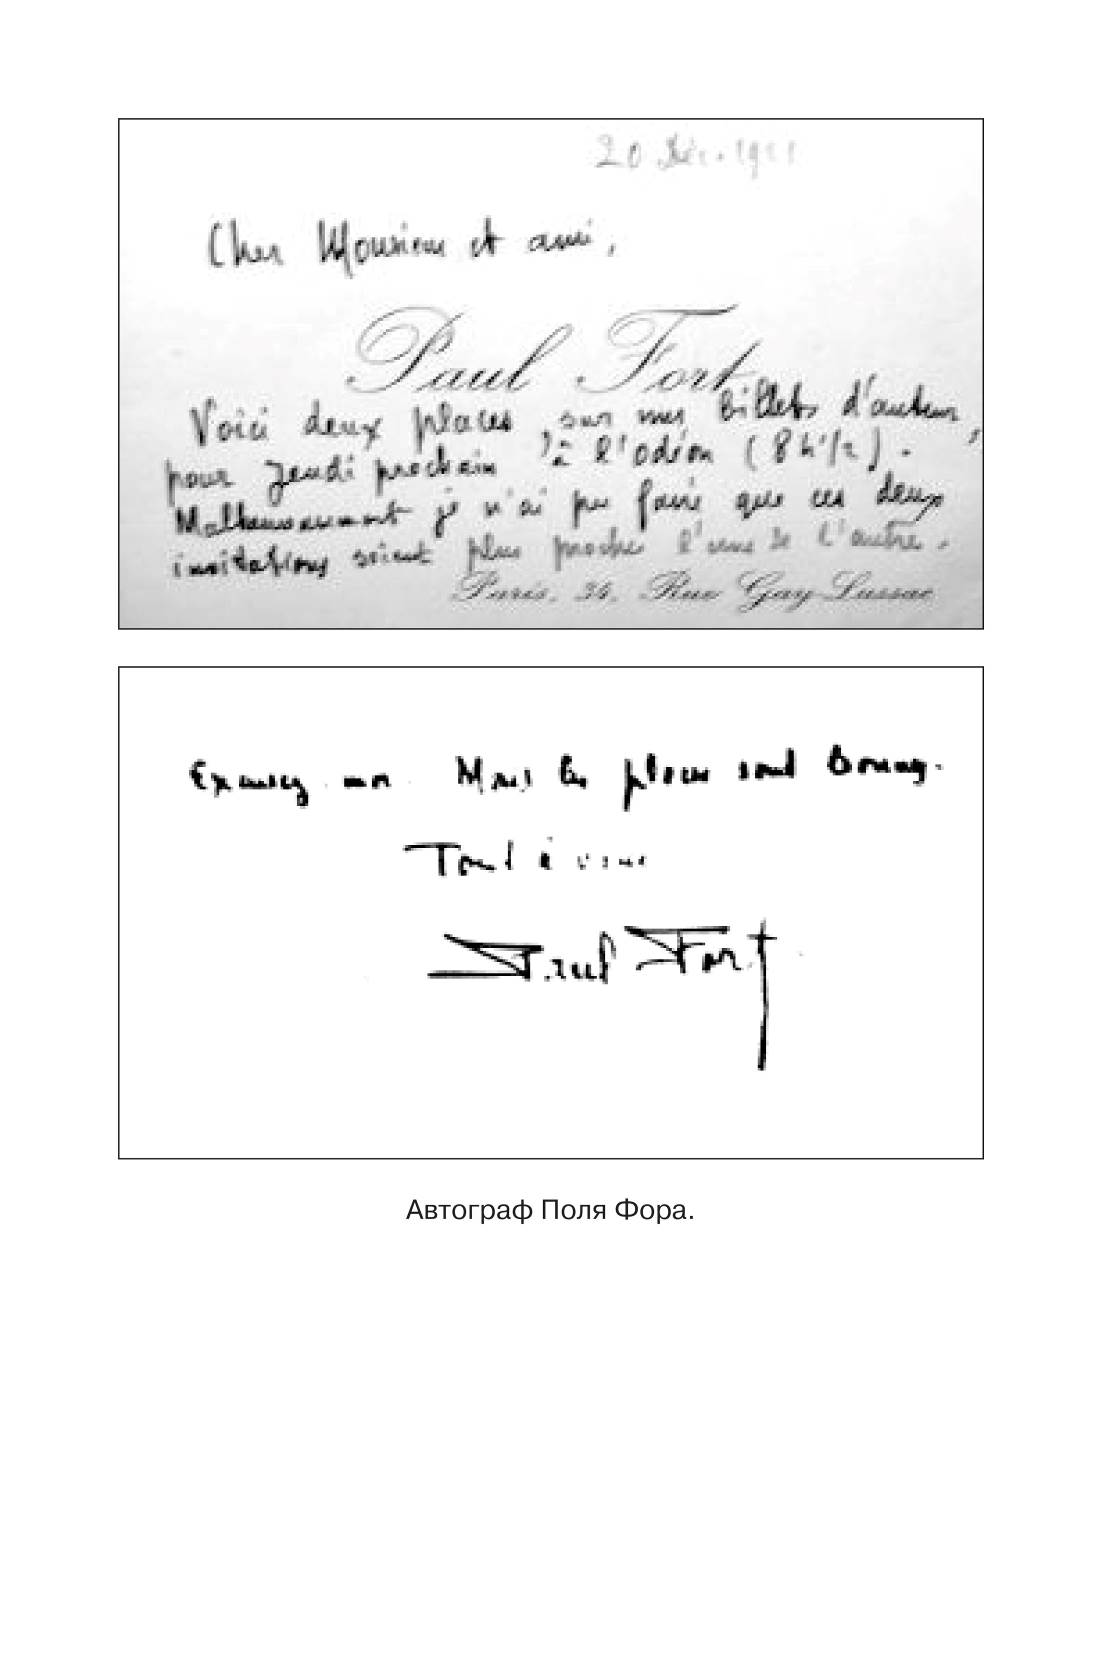 20 Déc. 1921
Cher Monsieur et ami,
Paul Fort
Voici deux places, sur mes billets d'auteur,
pour jeudi prochain à l'Odéon (8h 1/2).
Malheureusement je n'ai pu faire que ces deux
invitations soient plus proches l'une de l'autre.
Paris, 34, Rue Gay-Lussac
Excusez-moi. Mais les places sont bonnes.
Tout à vous
Paul Fort
Автограф Поля Фора.